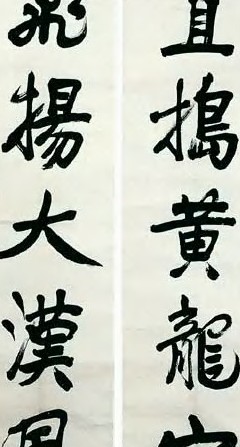 直搗黃龍
飛揚大漢風